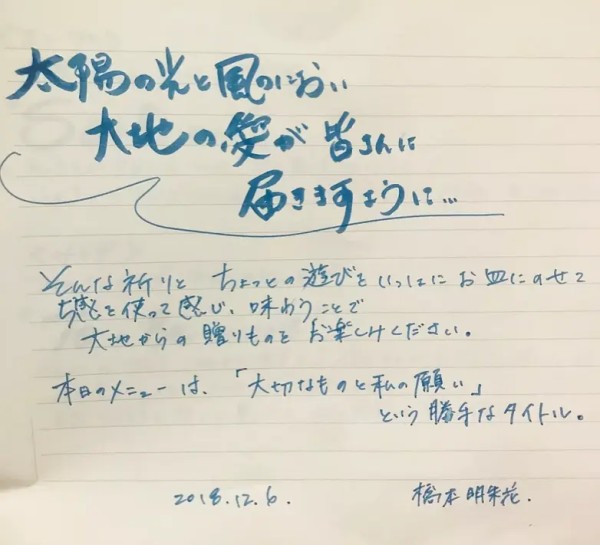 太陽の光と風のにおい
大地の愛が皆さんに
届きますように…
そんな祈りと ちょっとの遊びをいっしょにお皿にのせて
五感を使って感じ、味わうことで
大地からの贈りものをお楽しみください。
本日のメニューは、「大切なものと私の願い」
という勝手なタイトル。
2018.12.6.
橋本明朱花.